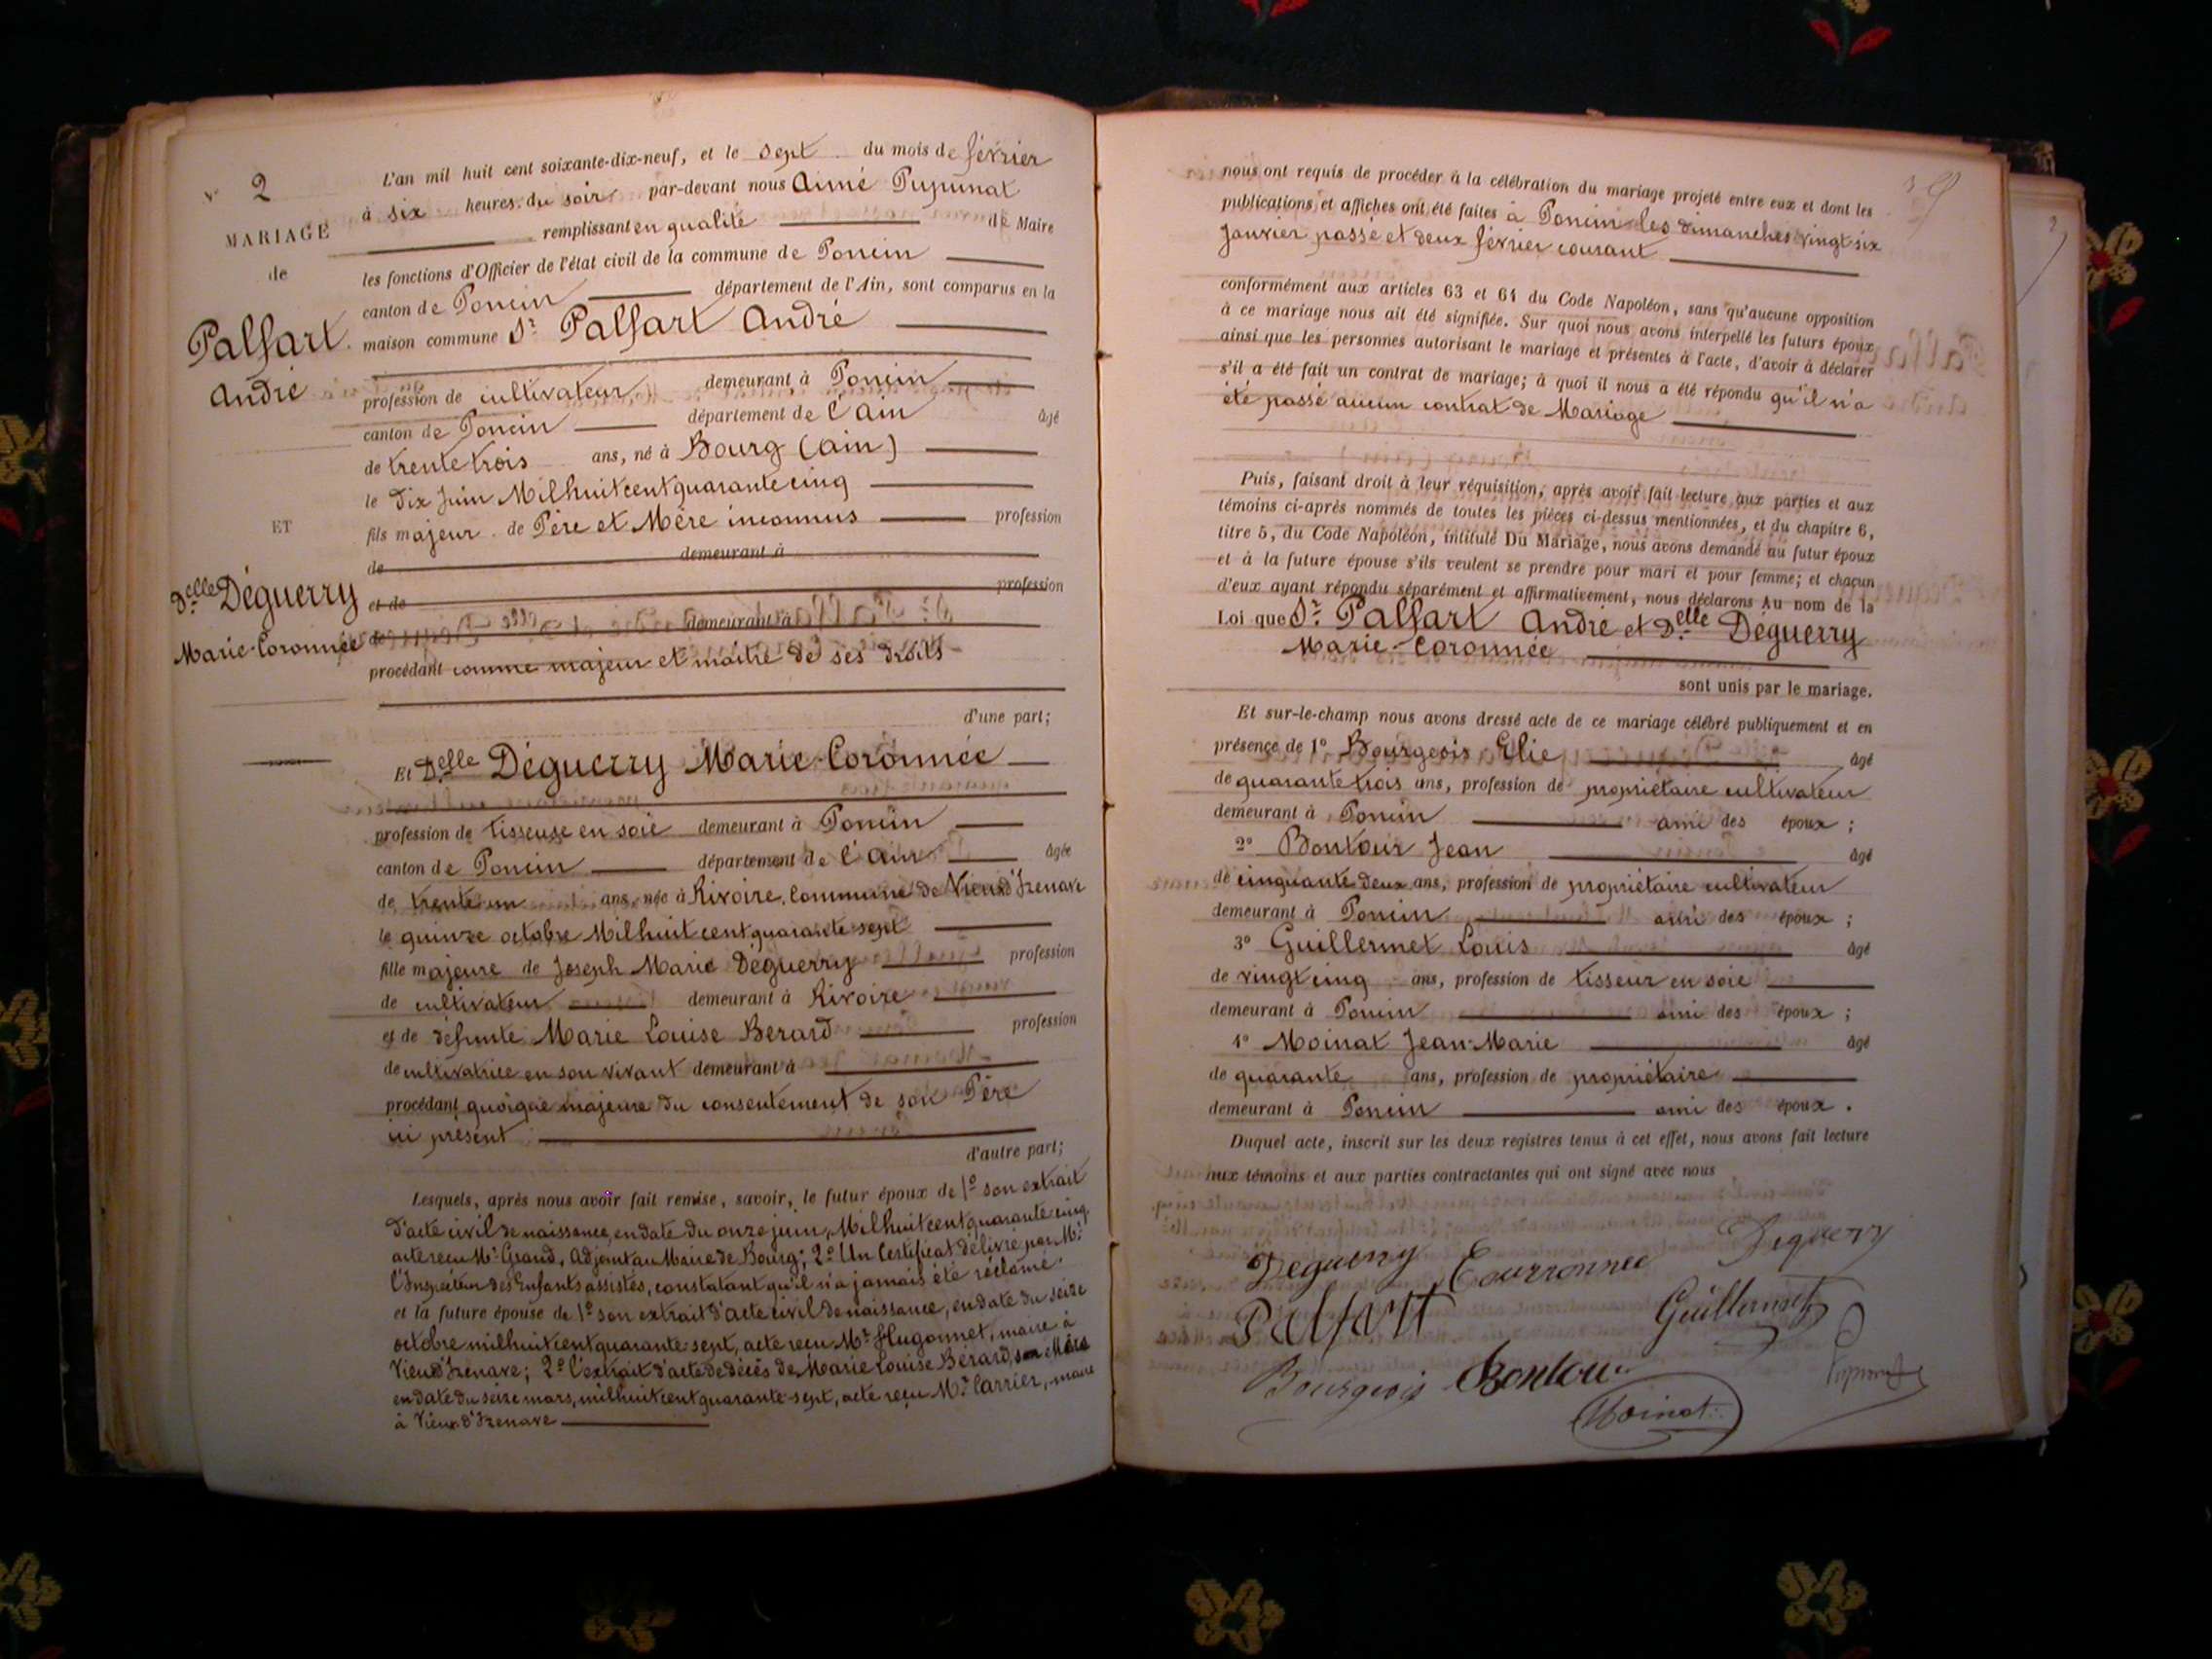 N° 2
MARIAGE
de
Palfart
André
ET
Delle Déguerry
Marie-Coronnée
L'an mil huit cent soixante-dix-neuf, et le sept du mois de février
à six heures du soir par-devant nous Aimé Pupunat
remplissant en qualité de Maire
les fonctions d'Officier de l'état civil de la commune de Poncin
canton de Poncin département de l'Ain, sont comparus en la
maison commune Sr Palfart André
profession de cultivateur demeurant à Poncin
canton de Poncin département de l'Ain âgé
de trente trois ans, né à Bourg (Ain)
le dix Juin Mil huit cent quarante cinq
fils majeur de Père et Mère inconnus profession
de demeurant à
et de profession
de demeurant à
procédant comme majeur et maître de ses droits
d'une part;
Et Delle Déguerry Marie-Coronnée
profession de tisseuse en soie demeurant à Poncin
canton de Poncin département de l'Ain âgée
de trente un ans, née à Rivoire, Commune de Vieu d'Izenave
le quinze octobre Mil huit cent quarante sept
fille majeure de Joseph Marie Déguerry profession
de cultivateur demeurant à Rivoire
et de défunte Marie Louise Berard profession
de cultivatrice en son vivant demeurant à
procédant quoique majeure du consentement de son Père
ici présent
d'autre part;
Lesquels, après nous avoir fait remise, savoir, le futur époux de 1° son extrait
d'acte civil de naissance, en date du onze juin, Mil huit cent quarante cinq.
acte reçu Mr Grand, Adjoint au Maire de Bourg; 2° Un Certificat délivré par Mr
l'Inspecteur des Enfants assistés, constatant qu'il n'a jamais été réclamé.
et la future épouse de 1° son extrait d'acte civil de naissance, en date du seize
octobre mil huit cent quarante-sept, acte reçu Mr Hugonnet, maire à
Vieu d'Izenave; 2° l'extrait d'acte de décès de Marie Louise Bérard, son Mère
en date du seize mars, mil huit cent quarante-sept, acte reçu Mr Carrier, maire
à Vieu d'Izenave
nous ont requis de procéder à la célébration du mariage projeté entre eux et dont les
publications et affiches ont été faites à Poncin les dimanches vingt six
Janvier passé et deux février courant
conformément aux articles 63 et 64 du Code Napoléon, sans qu'aucune opposition
à ce mariage nous ait été signifiée. Sur quoi nous avons interpellé les futurs époux
ainsi que les personnes autorisant le mariage et présentes à l'acte, d'avoir à déclarer
s'il a été fait un contrat de mariage; à quoi il nous a été répondu qu'il n'a
été passé aucun contrat de Mariage
Puis, faisant droit à leur réquisition, après avoir fait lecture aux parties et aux
témoins ci-après nommés de toutes les pièces ci-dessus mentionnées, et du chapitre 6,
titre 5, du Code Napoléon, intitulé Du Mariage, nous avons demandé au futur époux
et à la future épouse s'ils veulent se prendre pour mari et pour femme; et chacun
d'eux ayant répondu séparément et affirmativement, nous déclarons Au nom de la
Loi que Sr Palfart André et Delle Déguerry
Marie-Coronnée
sont unis par le mariage.
Et sur-le-champ nous avons dressé acte de ce mariage célébré publiquement et en
présence de 1° Bourgeois Elie âgé
de quarante trois ans, profession de propriétaire cultivateur
demeurant à Poncin ami des époux ;
2° Bontour Jean âgé
de cinquante deux ans, profession de propriétaire cultivateur
demeurant à Poncin ami des époux ;
3° Guillermet Louis âgé
de vingt cinq ans, profession de tisseur en soie
demeurant à Poncin ami des époux ;
4° Moinat Jean-Marie âgé
de quarante ans, profession de propriétaire
demeurant à Poncin ami des époux .
Duquel acte, inscrit sur les deux registres tenus à cet effet, nous avons fait lecture
aux témoins et aux parties contractantes qui ont signé avec nous
Deguerry Courronnee Deguerry
Palfart Guillermet
Bourgeois Bontour
Moinat